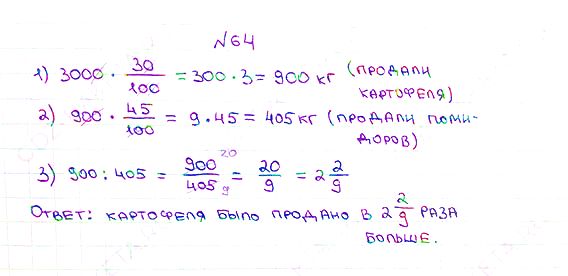 №64
1) 3000 · 30/100 = 300 · 3 = 900 кг (ПРОДАЛИ
КАРТОФЕЛЯ)
2) 900 · 45/100 = 9 · 45 = 405 кг (ПРОДАЛИ ПОМИ-
ДОРОВ)
3) 900 : 405 = 900 20/405 9 = 20/9 = 2 2/9
ОТВЕТ: КАРТОФЕЛЯ БЫЛО ПРОДАНО В 2 2/9 РАЗА
БОЛЬШЕ.